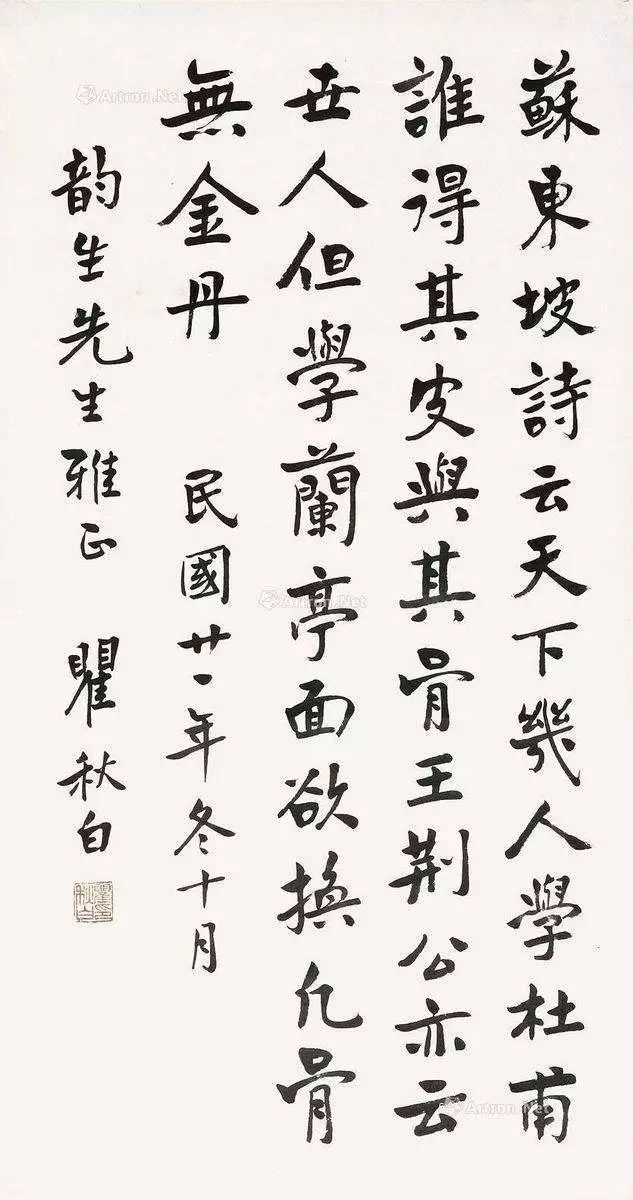 蘇東坡詩云天下幾人學杜甫
誰得其皮與其骨王荆公亦云
世人但學蘭亭面欲換凡骨
無金丹
民國廿一年冬十月
韵生先生雅正
瞿秋白
瞿秋白
Artron.Net
Artron.Net
Artron.Net